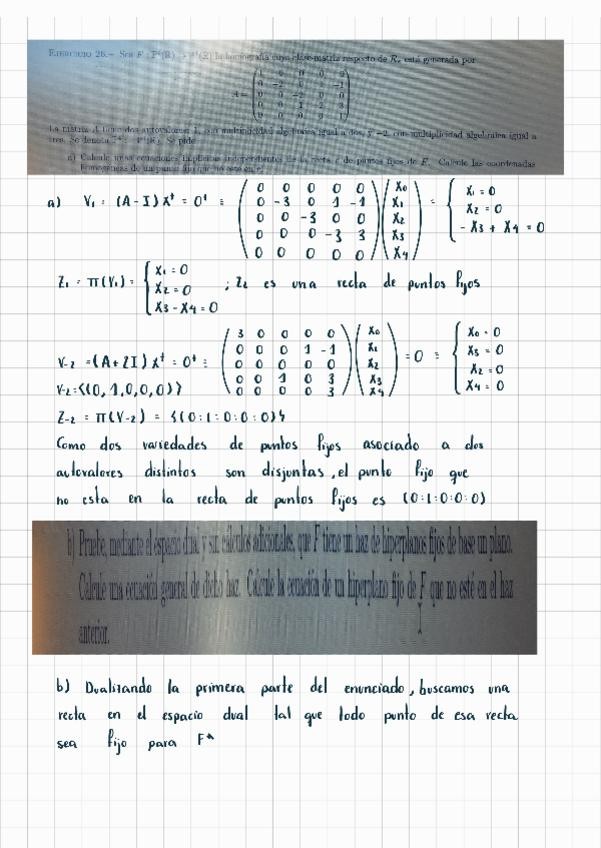 Ejercicio 26.– Sea F : P⁴(ℝ) → P⁴(ℝ) la homografía cuya clase-matriz respecto de R, está generada por
A =
La matriz A tiene dos autovalores: 1, con multiplicidad algebraica igual a dos, y −2, con multiplicidad algebraica igual a
tres. Se pide
a) Calcule unas ecuaciones implícitas independientes de la recta r de puntos fijos de F. Calcule las coordenadas
homogéneas de un punto fijo que no esté en r.
a) V₁ : (A-I) Xᵗ = 0ᵗ ≡ ( 0 0 0 0 0 ) ( X₀ ) ≡ { X₁ = 0
0 -3 0 1 -1 X₁ X₂ = 0
0 0 -3 0 0 X₂ - X₃ + X₄ = 0
0 0 0 -3 3 X₃
0 0 0 0 0 X₄
Z₁ = π(V₁) = { X₁ = 0
X₂ = 0 ; Z₁ es una recta de puntos fijos
X₃ - X₄ = 0
V₋₂ = (A+2I) Xᵗ = 0ᵗ ≡ ( 3 0 0 0 0 ) ( X₀ ) = 0 ≡ { X₀ = 0
0 0 0 1 -1 X₁ X₃ = 0
0 0 0 0 0 X₂ X₂ = 0
0 0 1 0 3 X₃ X₄ = 0
0 0 0 0 3 X₄
V₋₂ = <(0, 1, 0, 0, 0)>
Z₋₂ = π(V₋₂) = {(0:1:0:0:0)}
Como dos variedades de puntos fijos asociado a dos
autovalores distintos son disjuntas, el punto fijo que
no esta en la recta de puntos fijos es (0:1:0:0:0)
b) Pruebe, mediante el espacio dual y sin cálculos adicionales, que F tiene un haz de hiperplanos fijos de base un plano.
Calcule una ecuación general de dicho haz. Calcule la ecuación de un hiperplano fijo de F que no esté en el haz
anterior.
b) Dualizando la primera parte del enunciado, buscamos una
recta en el espacio dual tal que todo punto de esa recta
sea fijo para F*